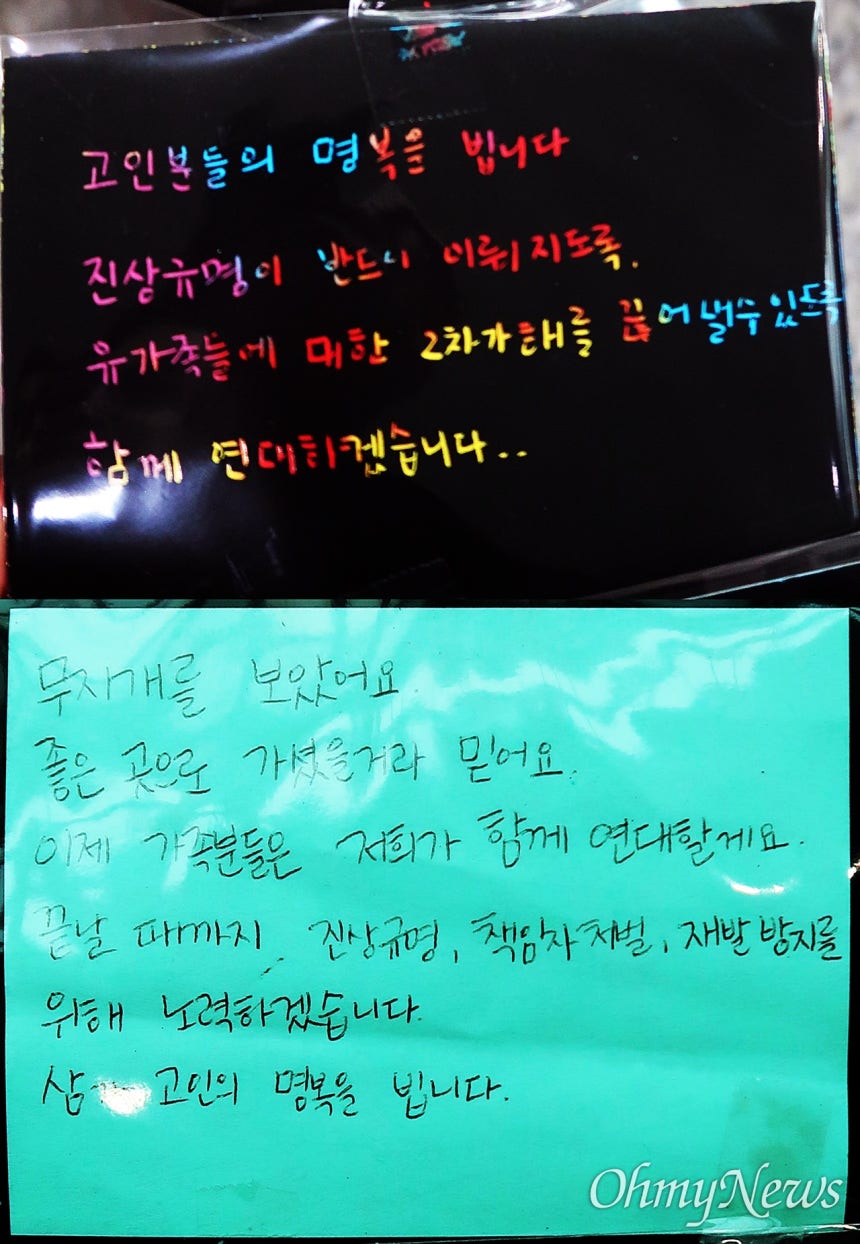 고인분들의 명복을 빕니다
진상규명이 반드시 이뤄지도록.
유가족들에 대한 2차가해를 끊어낼수있도록
함께 연대하겠습니다..
무지개를 보았어요
좋은 곳으로 가셨을거라 믿어요.
이제 가족분들은 저희가 함께 연대할게요.
끝날 때까지, 진상규명, 책임자처벌, 재발방지를
위해 노력하겠습니다.
삼 고인의 명복을 빕니다.
OhmyNews